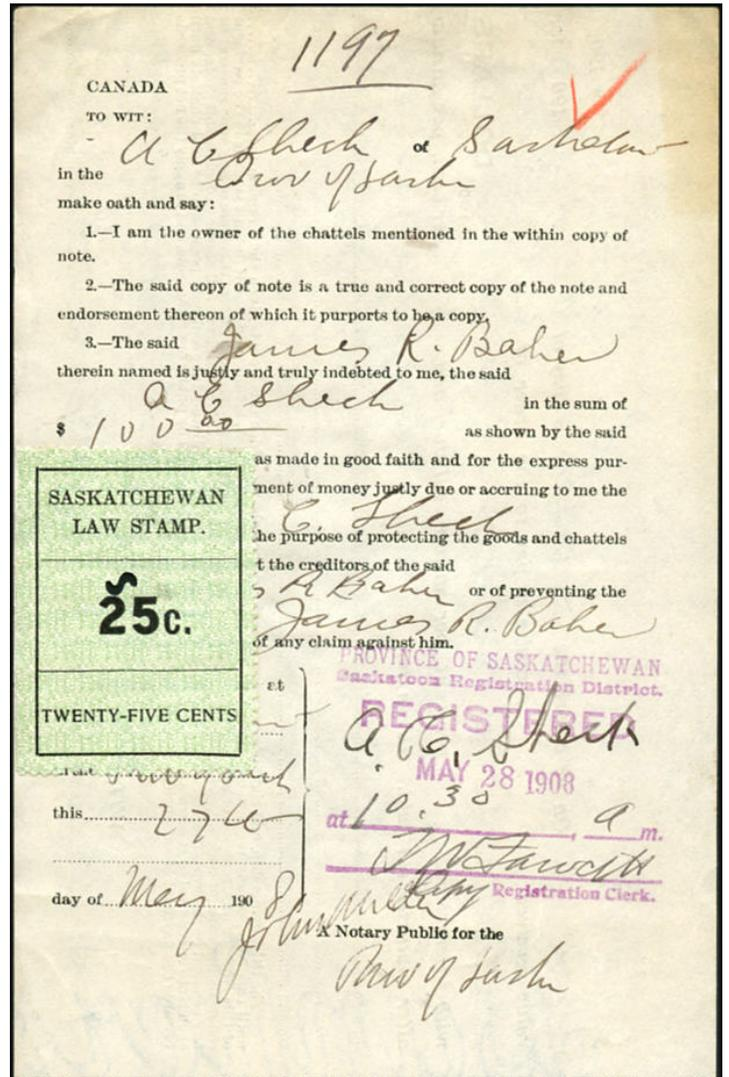 1197
CANADA
TO WIT:
A C Sheck of Saskatoon
in the Prov of Sask
make oath and say:
1.—I am the owner of the chattels mentioned in the within copy of
note.
2.—The said copy of note is a true and correct copy of the note and
endorsement thereon of which it purports to be a copy.
3.—The said James R. Baker
therein named is justly and truly indebted to me, the said
A C Sheck in the sum of
$ 100 00 as shown by the said
as made in good faith and for the express pur-
ment of money justly due or accruing to me the
C. Sheck
he purpose of protecting the goods and chattels
t the creditors of the said
s R Baker or of preventing the
James R. Baker
of any claim against him.
SASKATCHEWAN
LAW STAMP.
25c.
TWENTY-FIVE CENTS
PROVINCE OF SASKATCHEWAN
Saskatoon Registration District.
REGISTERED
at
A C. Sheck
MAY 28 1908
this 27th
at 10.30 a m.
Registration Clerk.
day of May 1908
A Notary Public for the
Prov of Sask